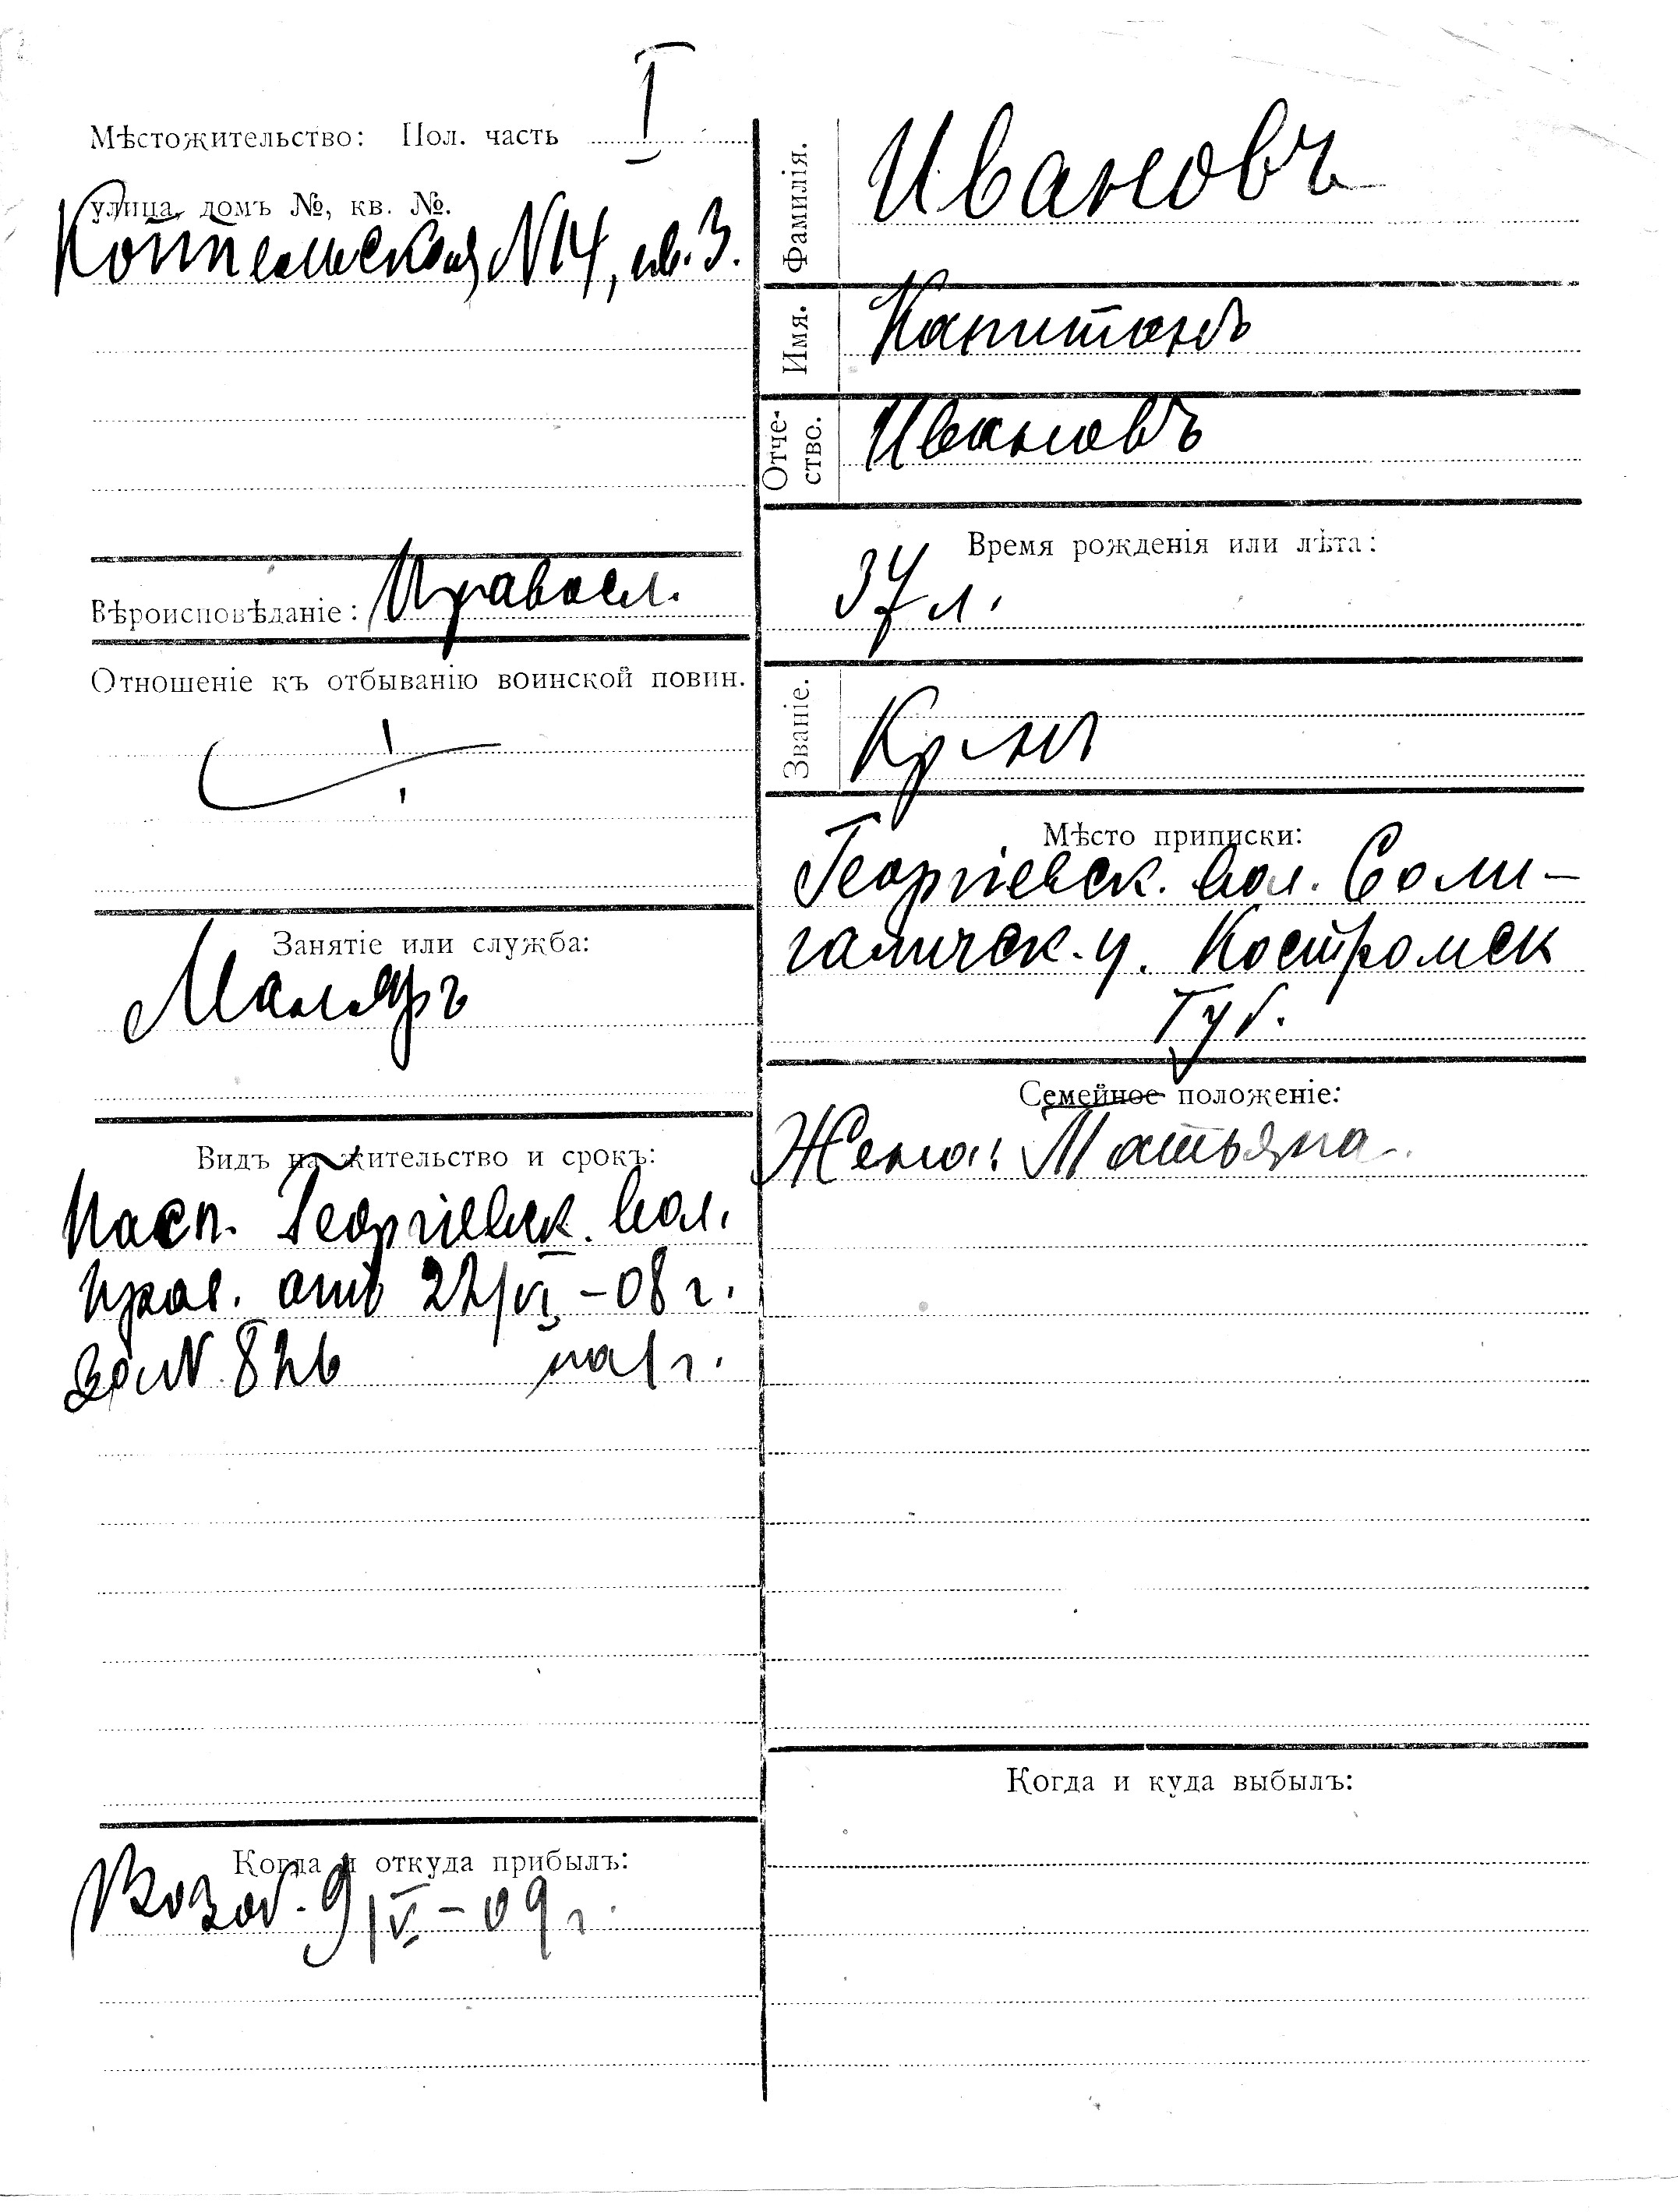 Мѣстожительство: Пол. часть I
улица, домъ №, кв. №.
N 14, кв. 3.
Вѣроисповѣданіе: Правосл.
Отношеніе къ отбыванію воинской повин.
Занятіе или служба:
Маляръ
Видъ на жительство и срокъ:
Пасп. Георгіевск. вол.
прав. отъ 22/VI – 08 г.
за N 826 на 1 г.
Когда и откуда прибылъ:
Возоб. 9/V – 09 г.
Фамилія. Ивановъ
Имя. Капитонъ
Отче-
ство. Ивановъ
Время рожденія или лѣта:
37 л.
Званіе. Кр-нъ
Мѣсто приписки:
Георгіевск. вол. Соли-
галичск. у. Костромск
Губ.
Семейное положеніе:
Жена: Татьяна
Когда и куда выбылъ: